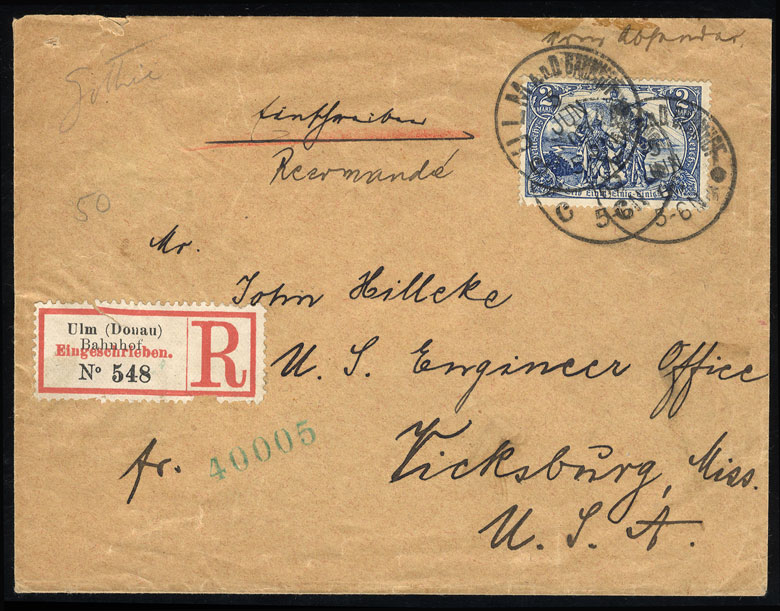 vom Absender.
Gothic
Einschreiben
Recomandé
50
2
MARK
2
MARK
ULM a.D. BAHNHOF
JUN
5-6 N
C
5-6 N
Mr.
John Hillcke
U. S. Engineer Office
Vicksburg, Miss.
U. S. A.
Ulm (Donau)
Bahnhof.
Eingeschrieben.
No 548
R
fr.
40005